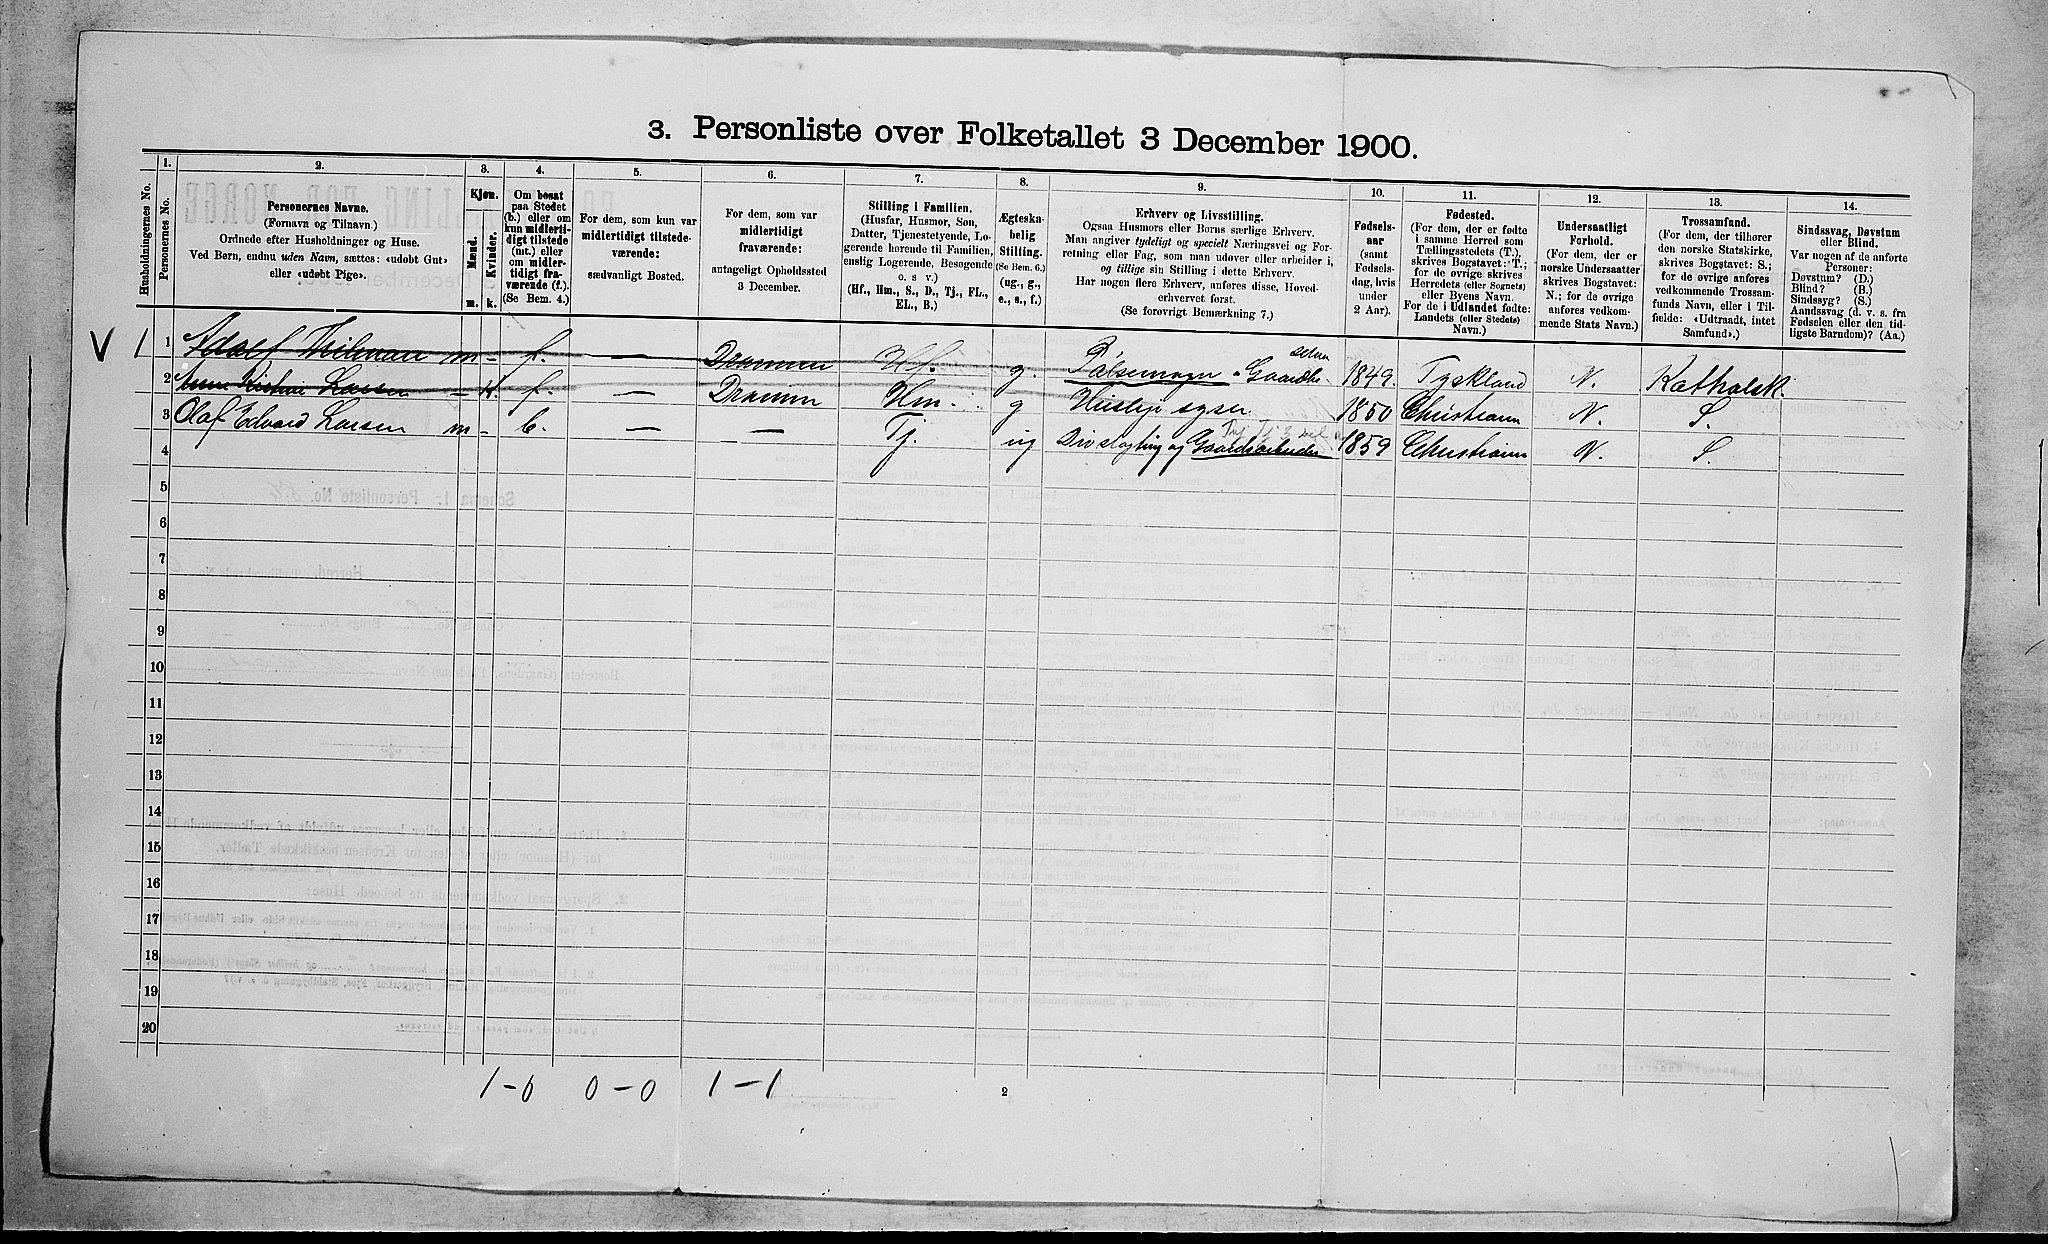 3. Personliste over Folketallet 3 December 1900.
1. 2. 3. 4. 5. 6. 7. 8. 9. 10. 11. 12. 13. 14.
Husholdningernes No.
Personernes No.
Personernes Navne.
(Fornavn og Tilnavn.)
Ordnede efter Husholdninger og Huse.
Ved Børn, endnu uden Navn, sættes: «udøbt Gut»
eller «udøbt Pige».
Kjøn.
Mænd.
Kvinder.
m. k.
Om bosat
paa Stedet
(b.) eller om
kun midlerti-
digt tilstede
(mt.) eller
om midler-
tidigt fra-
værende (f.).
(Se Bem. 4.)
For dem, som kun var
midlertidigt tilstede-
værende:
sædvanligt Bosted.
For dem, som var
midlertidigt
fraværende:
antageligt Opholdssted
3 December.
Stilling i Familien.
(Husfar, Husmor, Søn,
Datter, Tjenestetyende, Lo-
gerende hørende til Familien,
enslig Logerende, Besøgende
o. s v.)
(Hf., Hm., S., D., Tj., FL.,
EL., B.)
Ægteska-
belig
Stilling.
(Se Bem. 6.)
(ug., g.,
e., s., f.)
Erhverv og Livsstilling.
Ogsaa Husmors eller Børns særlige Erhverv.
Man angiver tydeligt og specielt Næringsvei og For-
retning eller Fag, som man udøver eller arbeider i,
og tillige sin Stilling i dette Erhverv.
Har nogen flere Erhverv, anføres disse, Hoved-
erhvervet først.
(Se forøvrigt Bemærkning 7.)
Fødsels-
aar
(samt
Fødsels-
dag, hvis
under
2 Aar).
Fødested.
(For dem, der er fødte
i samme Herred som
Tællingsstedets (T.),
skrives Bogstavet: T.;
for de øvrige skrives
Herredets (eller Sognets)
eller Byens Navn.
For de i Udlandet fødte:
Landets (eller Stedets)
Navn.)
Undersaatligt
Forhold.
(For dem, der er
norske Undersaatter
skrives Bogstavet:
N.; for de øvrige
anføres vedkom-
mende Stats Navn.)
Trossamfund.
(For dem, der tilhører
den norske Statskirke,
skrives Bogstavet: S.;
for de øvrige anføres
vedkommende Trossam-
funds Navn, eller i Til-
fælde: «Udtraadt, intet
Samfund».)
Sindssvag, Døvstum
eller Blind.
Var nogen af de anførte
Personer:
Døvstum? (D.)
Blind? (B.)
Sindssyg? (S.)
Aandssvag (d. v. s. fra
Fødselen eller den tid-
ligste Barndom)? (Aa.)
V 1 1 Adolf m - f. — Drammen Hf. g. Pølsemager Gaardbr. 1849. Tyskland N. Katholsk.
2 Larsen - k. f. — Drammen Hm. g 1850 Christiania N. S.
3 Olaf Edvard Larsen m - b. — — Tj. ug og Gaardsarbeider 1859 Christiania N. S.
4
5
6
7
8
9
10
11
12
13
14
15
16
17
18
19
20
1-0 0-0 1-1
2